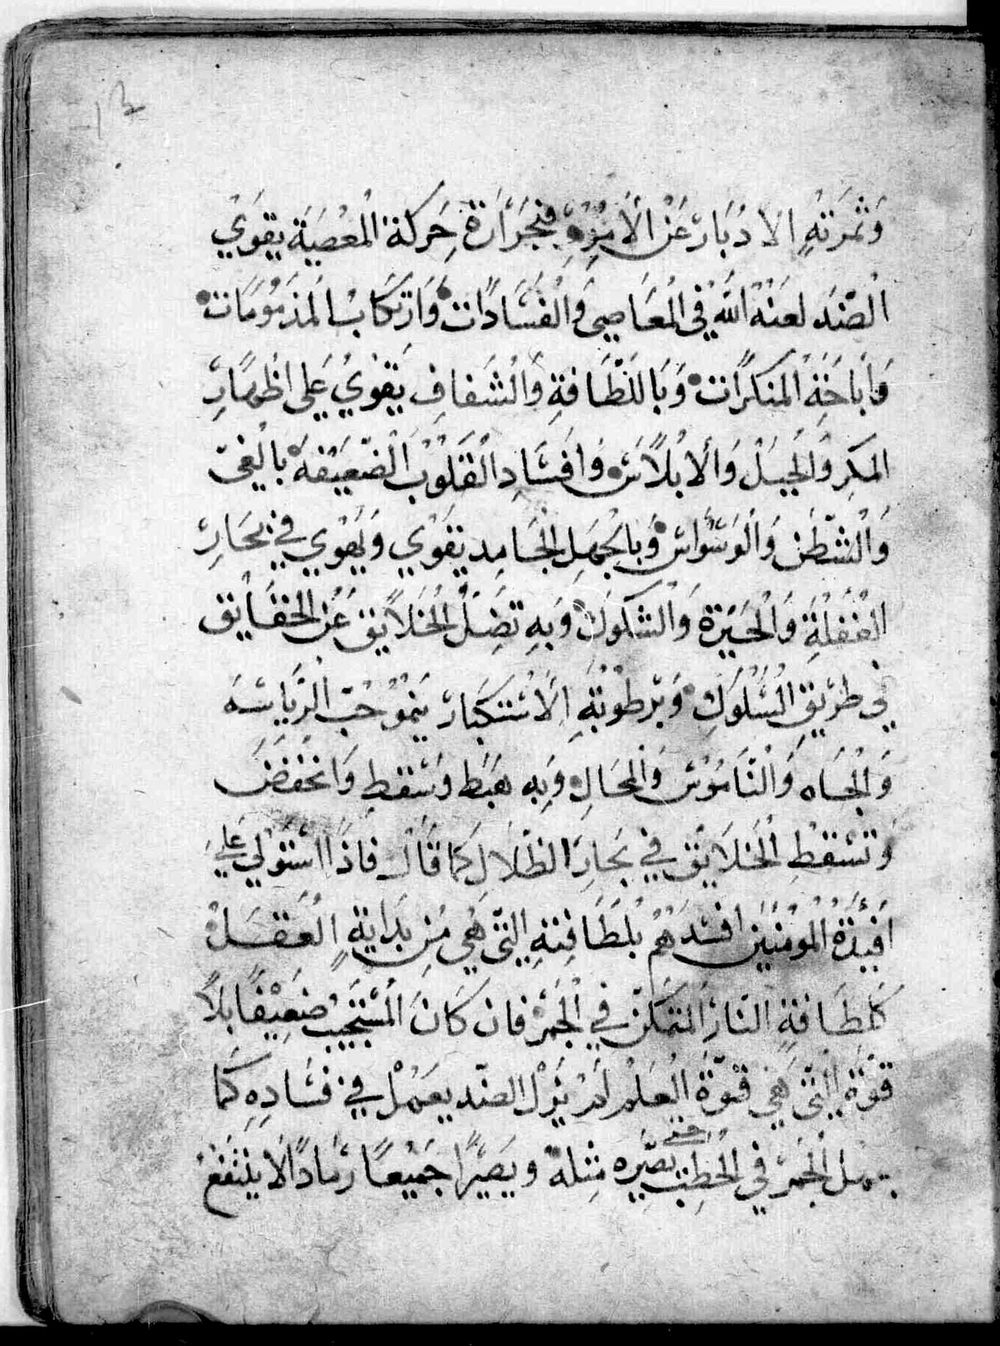 وَثَمَرَتهِ الادْبَارْ عَنْ الأَمْرِ فبحَرَارَة حَركَة الْمَعْصِيَة يقوَيْ
الْضّندَ لعَنَة اللَّه فِي المْعَاصِي وَالفَسَادَات وَارتكَابْ المَذمُومَات
وَأباحَةِ المْنَكرَات وَبَاللَطَافةِ وَالشَفافِ يَقوْيُ عَلى اظهَارِ
المَكِر وْالحْيَلْ وَالأبْلاَسْ وَافسَادِ القَلوُبْ الضَعَيْفَة بالغيّ
وَالْشّطَن وَالوَسْوَاسْ وَبالجْهَلِ الجْامِد يقوَيْ وَيَهْوي في بحَارْ
الغَفْلَةِ وَالْحَيْرَة وَالْشكوُكْ وَبهِ تضِلْ الْخَلاَيق عَنْ الحَقَايق
في طرَيقِ السْلُوكِ وَبرَطوُبَةِ الاَسْتكْبَارْ يَنموُ حُبّ الرّيَاسَه
وَالْجَاه وَالْنَامُوسْ وَالمحَالِ وَبِه هَبَط وَسْقطِ وَانخفَضَ
وَتسْقطِ الْخَلايَق في بَحارِ الظلاَلِ كمَا قَالْ فاذَا استَوْلي عَليَ
أفيْدَةُ الْمُومْنيَن افسَدَهُمْ بْلطَافتِهِ التّي هَي مِنْ بدَايةِ الْعَقَلْ
كلطَافةِ النّارْ المتمَكنْ في الجْمَرْ فان كَانَ المْسْتَجيبْ ضَعَيْفًا بَلاَ
قوّةِ التّي هَي قوّةْ العْلَمْ لَمْ يَزْل الضّد يعَمْلْ في فسَادِهِ كَمَا
يعمل الجْمَرْ في الحْطبْ حتى يصّيره مثلهْ ويصَيْرَا جَمَيْعَا رْمَادًا لاَ ينْتفَعْ